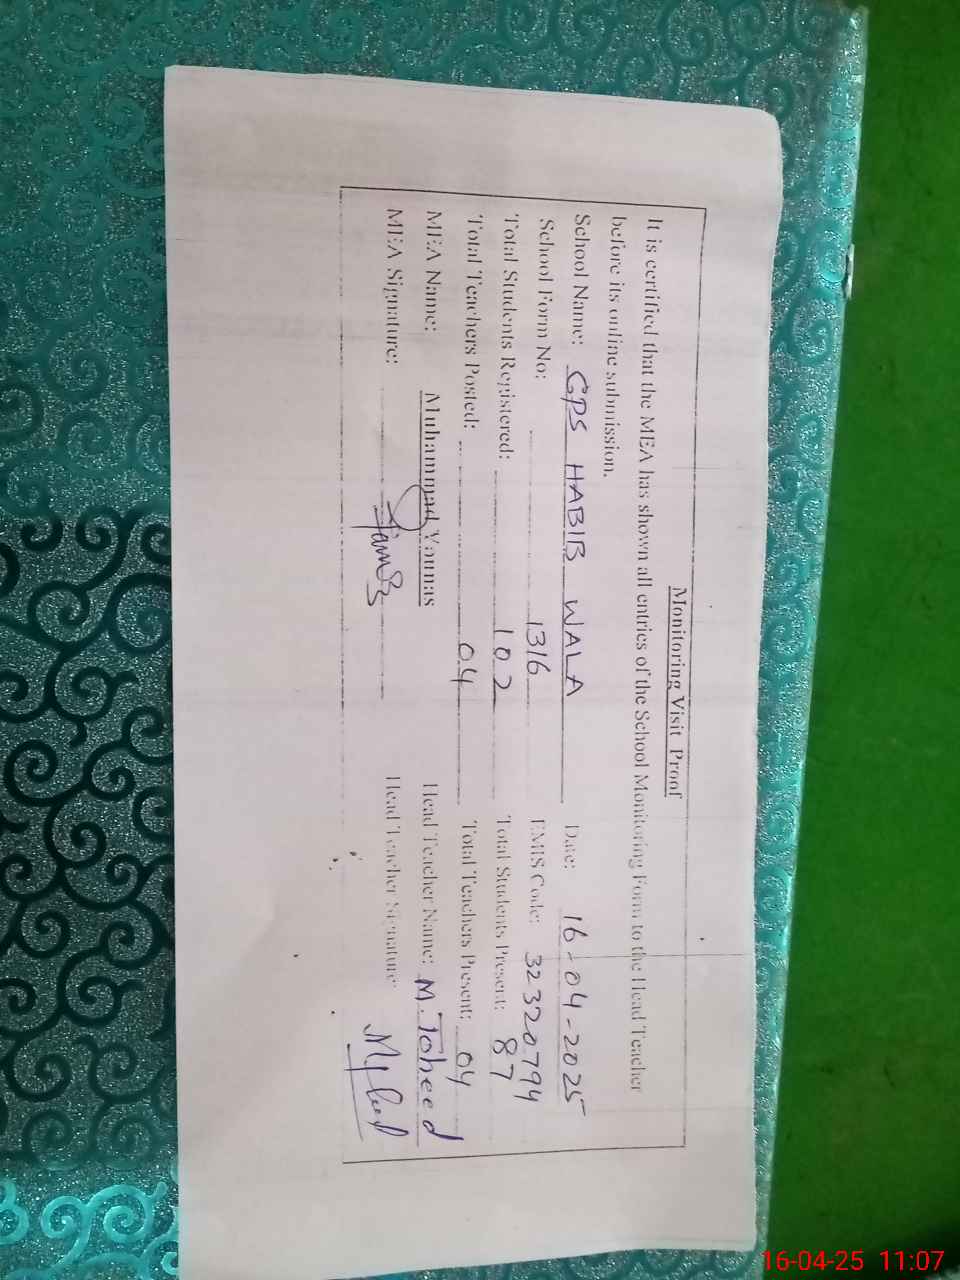 Monitoring Visit Proof
It is certified that the MEA has shown all entries of the School Monitoring Form to the Head Teacher
before its online submission.
School Name: GPS HABIB WALA Date: 16-04-2025
School Form No: 1316 EMIS Code: 32320794
Total Students Registered: 102 Total Students Present: 87
Total Teachers Posted: 04 Total Teachers Present: 04
MEA Name: Muhammad Younas Head Teacher Name: M. Toheed
MEA Signature: Head Teacher Signature
16-04-25 11:07